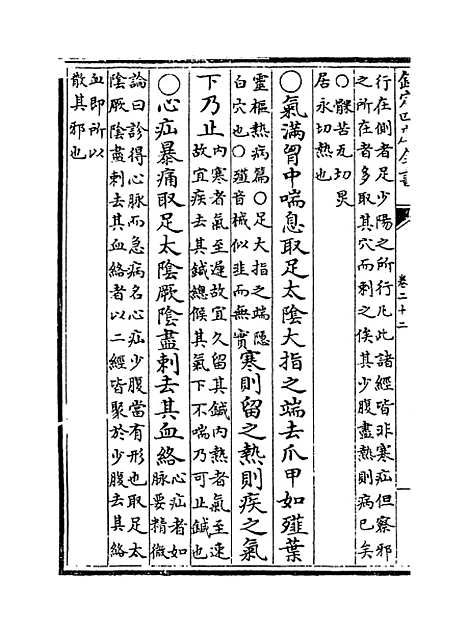 欽定四庫全書
卷二十二
行在側者足少陽之所行凡此諸經皆非寒疝但察邪
之所在者多取其穴而刺之俟其少腹盡熱則病已矣
○髁苦瓦切炅
居永切熱也
○氣滿胷中喘息取足太陰大指之端去爪甲如薤葉
靈樞熱病篇○足大指之端隱
白穴也○薤音械似韭而無實
寒則留之熱則疾之氣
下乃止
内寒者氣至遲故宜久留其鍼内熱者氣至速
故宜疾去其鍼總候其氣下不喘乃可止鍼也
○心疝暴痛取足太陰厥陰盡刺去其血絡
心疝者如
脉要精微
論曰診得心脉而急病名心疝少腹當有形也取足太
陰厥陰盡刺去其血絡者以二經皆聚於少腹去其絡
血即所以
散其邪也